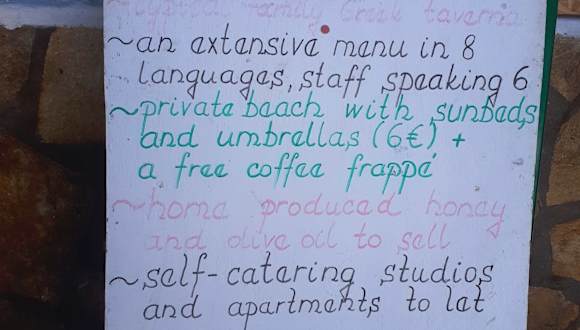 ~typical family Greek taverna
~an extensive menu in 8
languages, staff speaking 6
~private beach with sunbeds
and umbrellas (6€) +
a free coffee frappé
~home produced honey
and olive oil to sell
~self-catering studios
and apartments to let